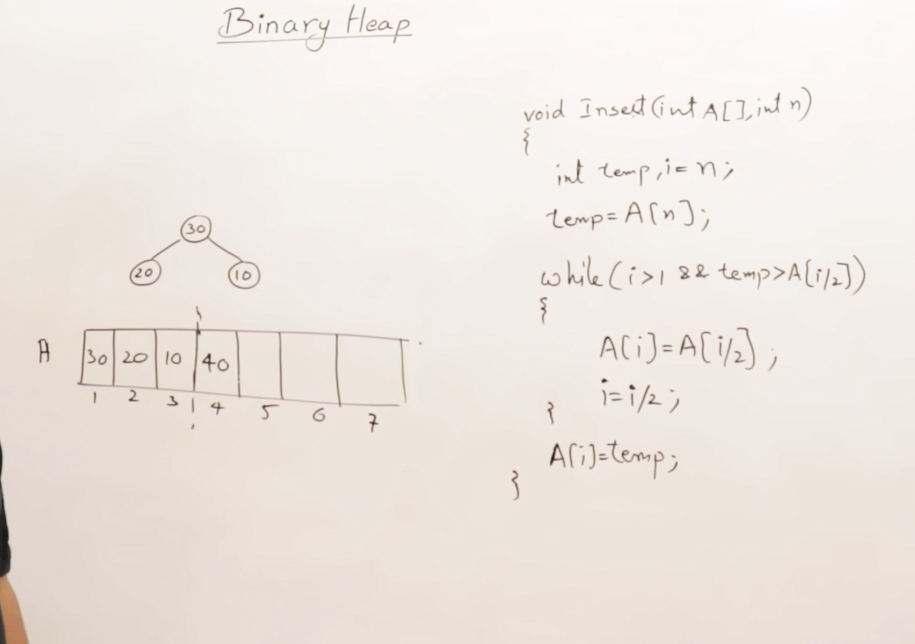 Binary Heap
30
20 10
A 30 20 10 40
1 2 3 4 5 6 7
void Insert(int A[], int n)
{
int temp, i=n;
temp=A[n];
while(i>1 && temp>A[i/2])
{
A[i]=A[i/2];
i=i/2;
}
A[i]=temp;
}